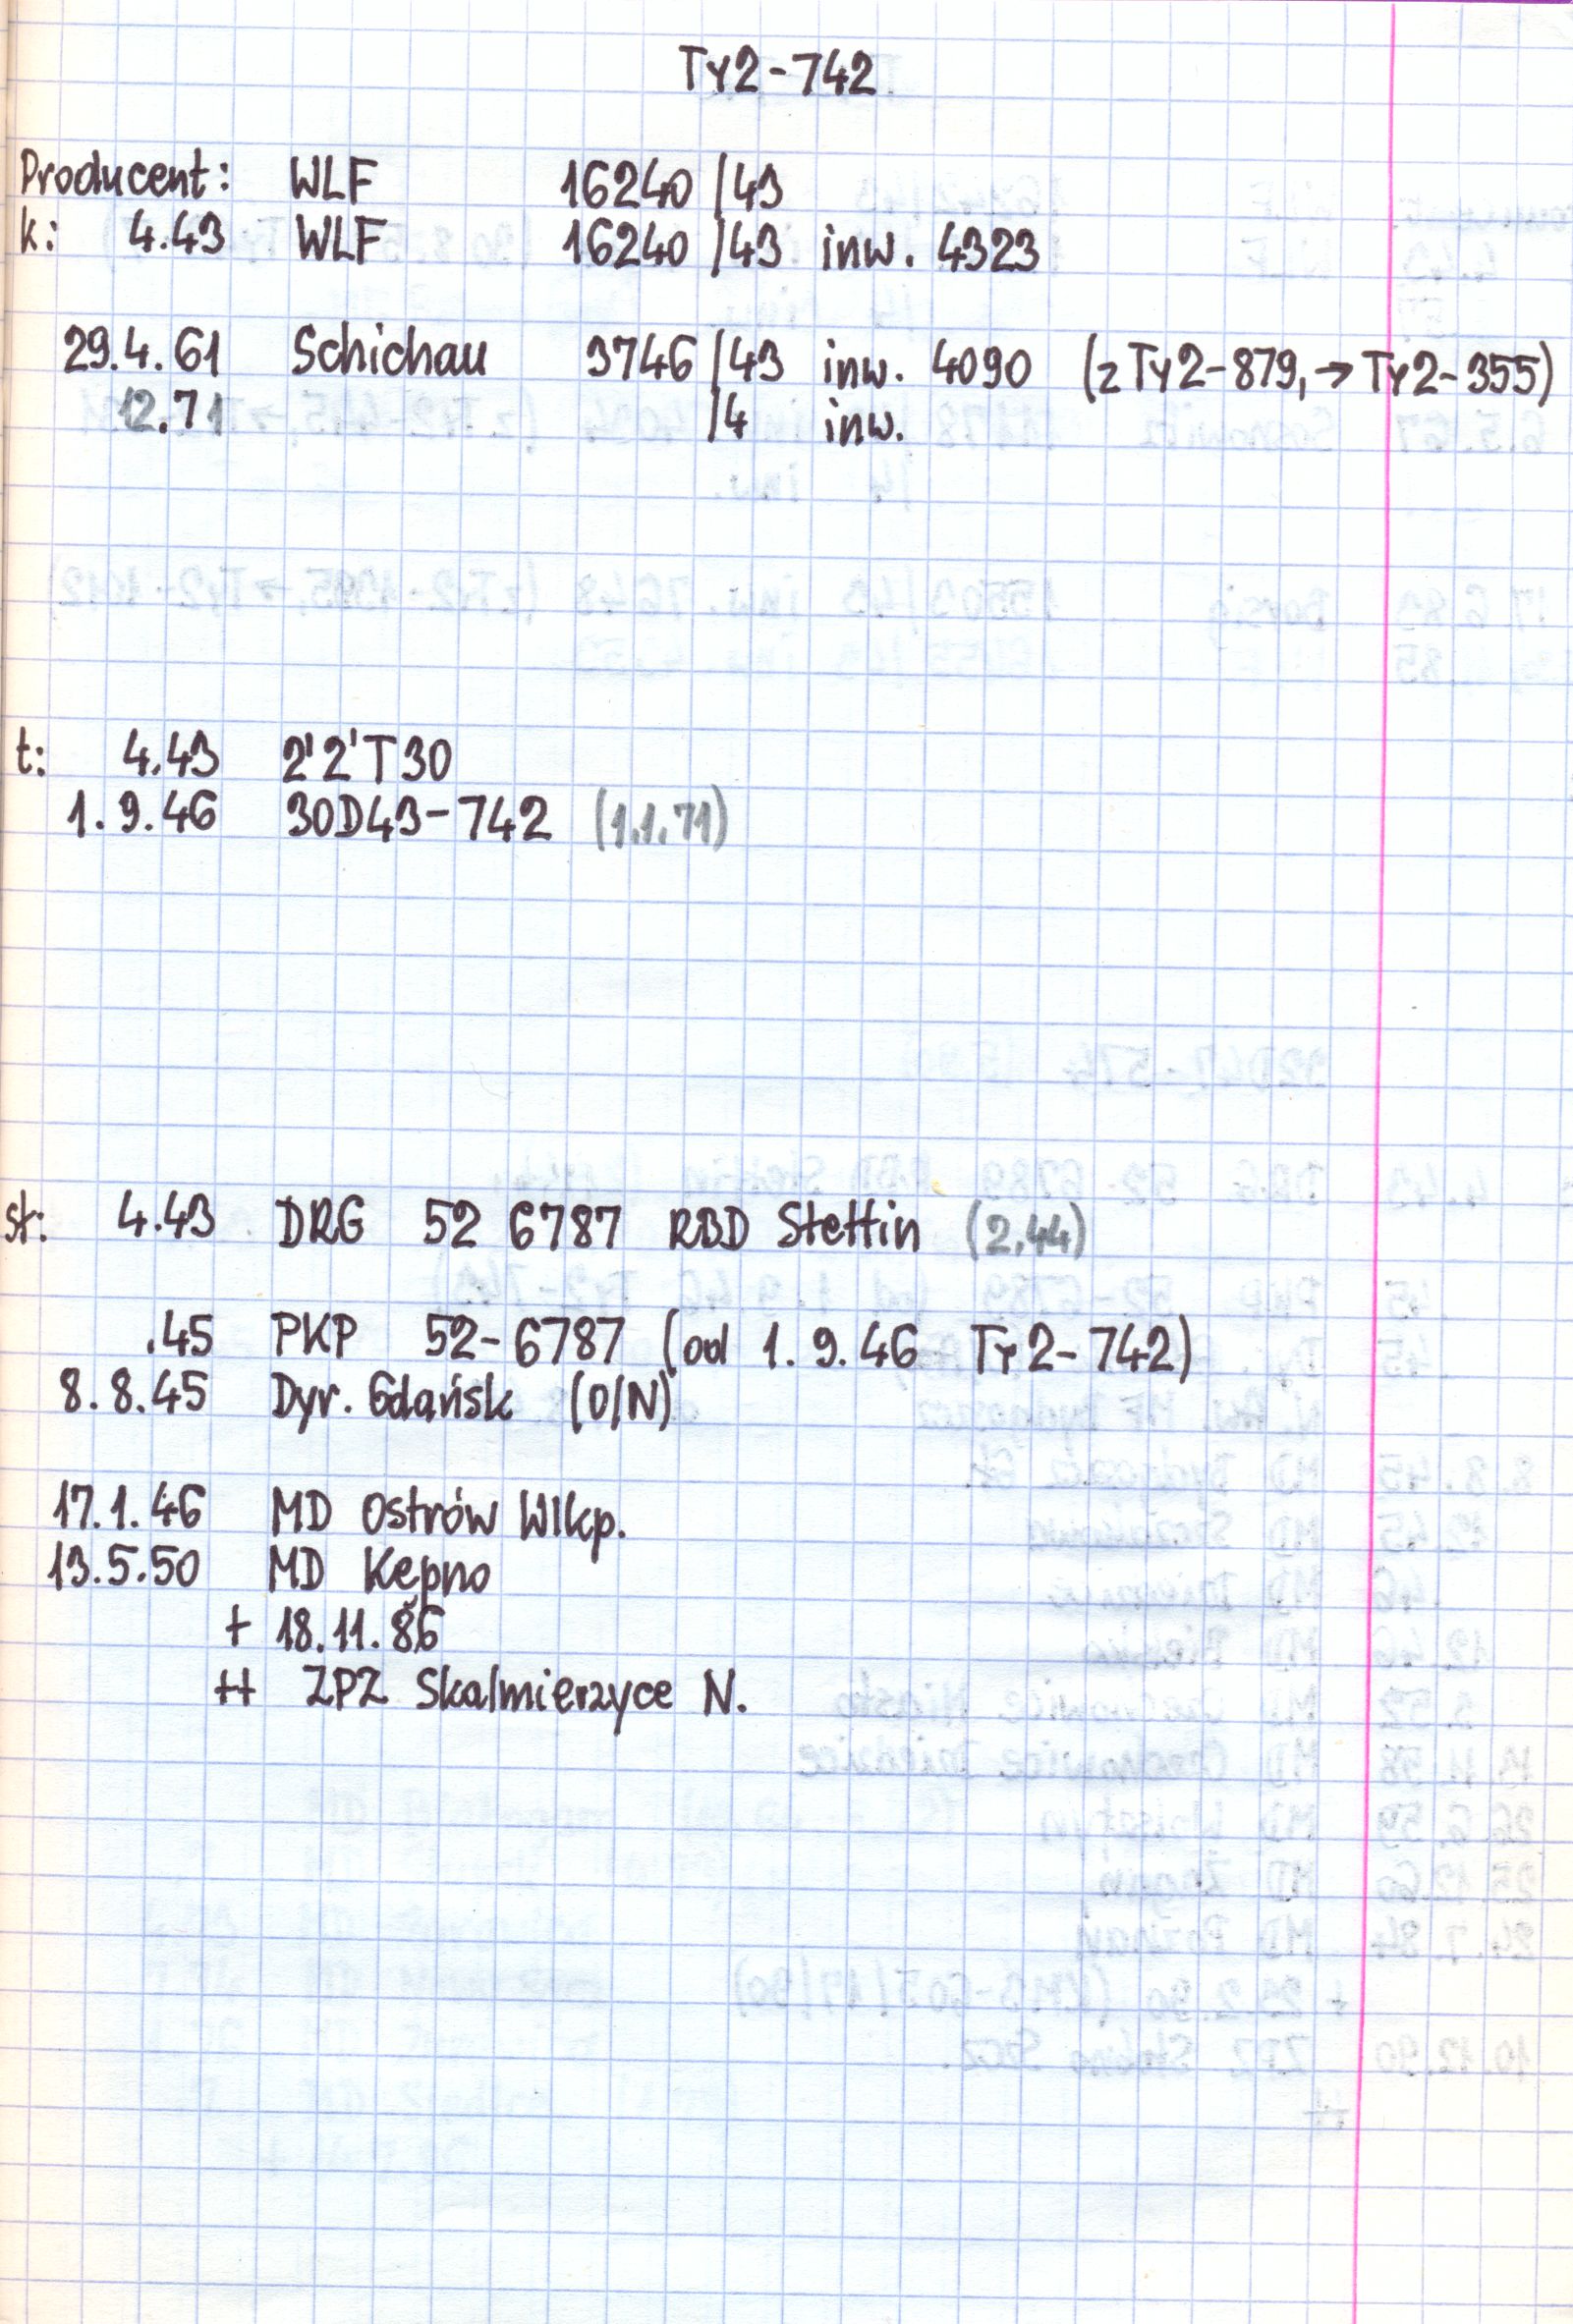 Ty2-742
Producent: WLF 16240/43
k: 4.43 WLF 16240/43 inw. 4323
29.4.61 Schichau 3746/43 inw. 4090 (z Ty2-879, → Ty2-355)
12.71 /4 inw.
t: 4.43 2'2'T30
1.9.46 30D43-742 (1.1.71)
st: 4.43 DRG 52 6787 RBD Stettin (2.44)
.45 PKP 52-6787 (od 1.9.46 Ty2-742)
8.8.45 Dyr. Gdańsk (O/N)
17.1.46 MD Ostrów Wlkp.
13.5.50 MD Kępno
+ 18.11.86
++ ZPZ Skalmierzyce N.